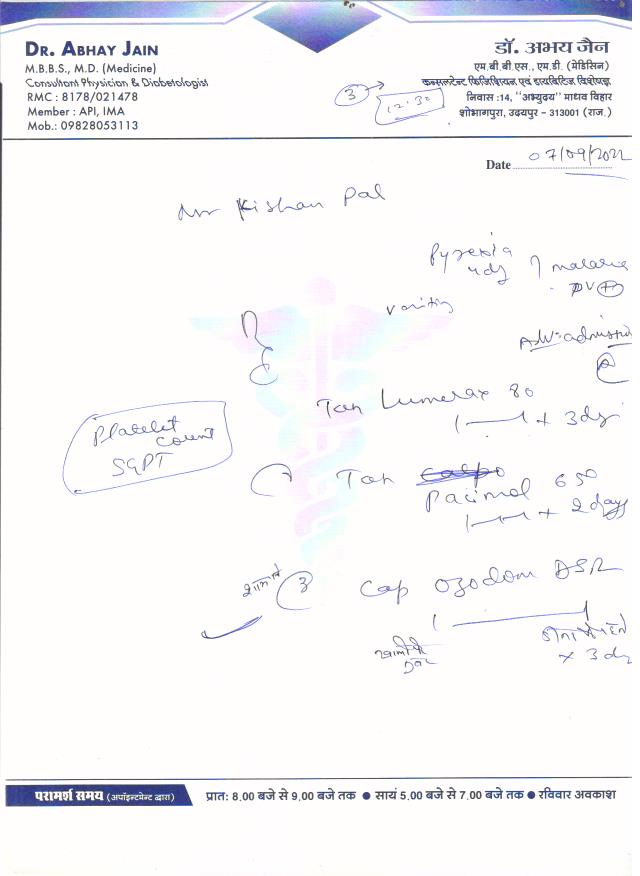 DR. ABHAY JAIN
M.B.B.S., M.D. (Medicine)
Consultant Physician & Diabetologist
RMC : 8178/021478
Member : API, IMA
Mob.: 09828053113
डॉ. अभय जैन
एम.बी.बी.एस., एम.डी. (मेडिसिन)
कन्सलटेन्ट फिजिशियन एवं डायबिटिज विशेषज्ञ
निवास :14, "अभ्युदय" माधव विहार
शोभागपुरा, उदयपुर - 313001 (राज.)
3
12:30
Date 07/09/2022
Mr Kishan Pal
Pyrexia
4dy
malaria
PV +
Vomiting
Adv: admission
Tab Lumerax 80
1 — 1 x 3dy
Platelet
Count
SGPT
Tab
Pacimol 650
1 — 1 x 2 days
3 Cap Ozodom DSR
x 3dy
परामर्श समय (अपॉइन्टमेन्ट द्वारा)
प्रात: 8.00 बजे से 9.00 बजे तक ● सायं 5.00 बजे से 7.00 बजे तक ● रविवार अवकाश